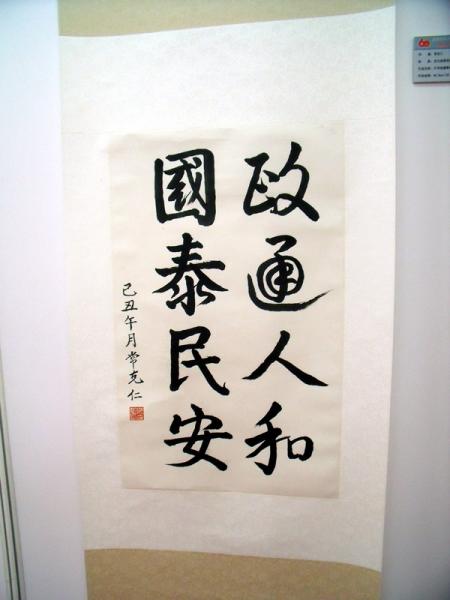 政通人和
國泰民安
己丑午月常克仁